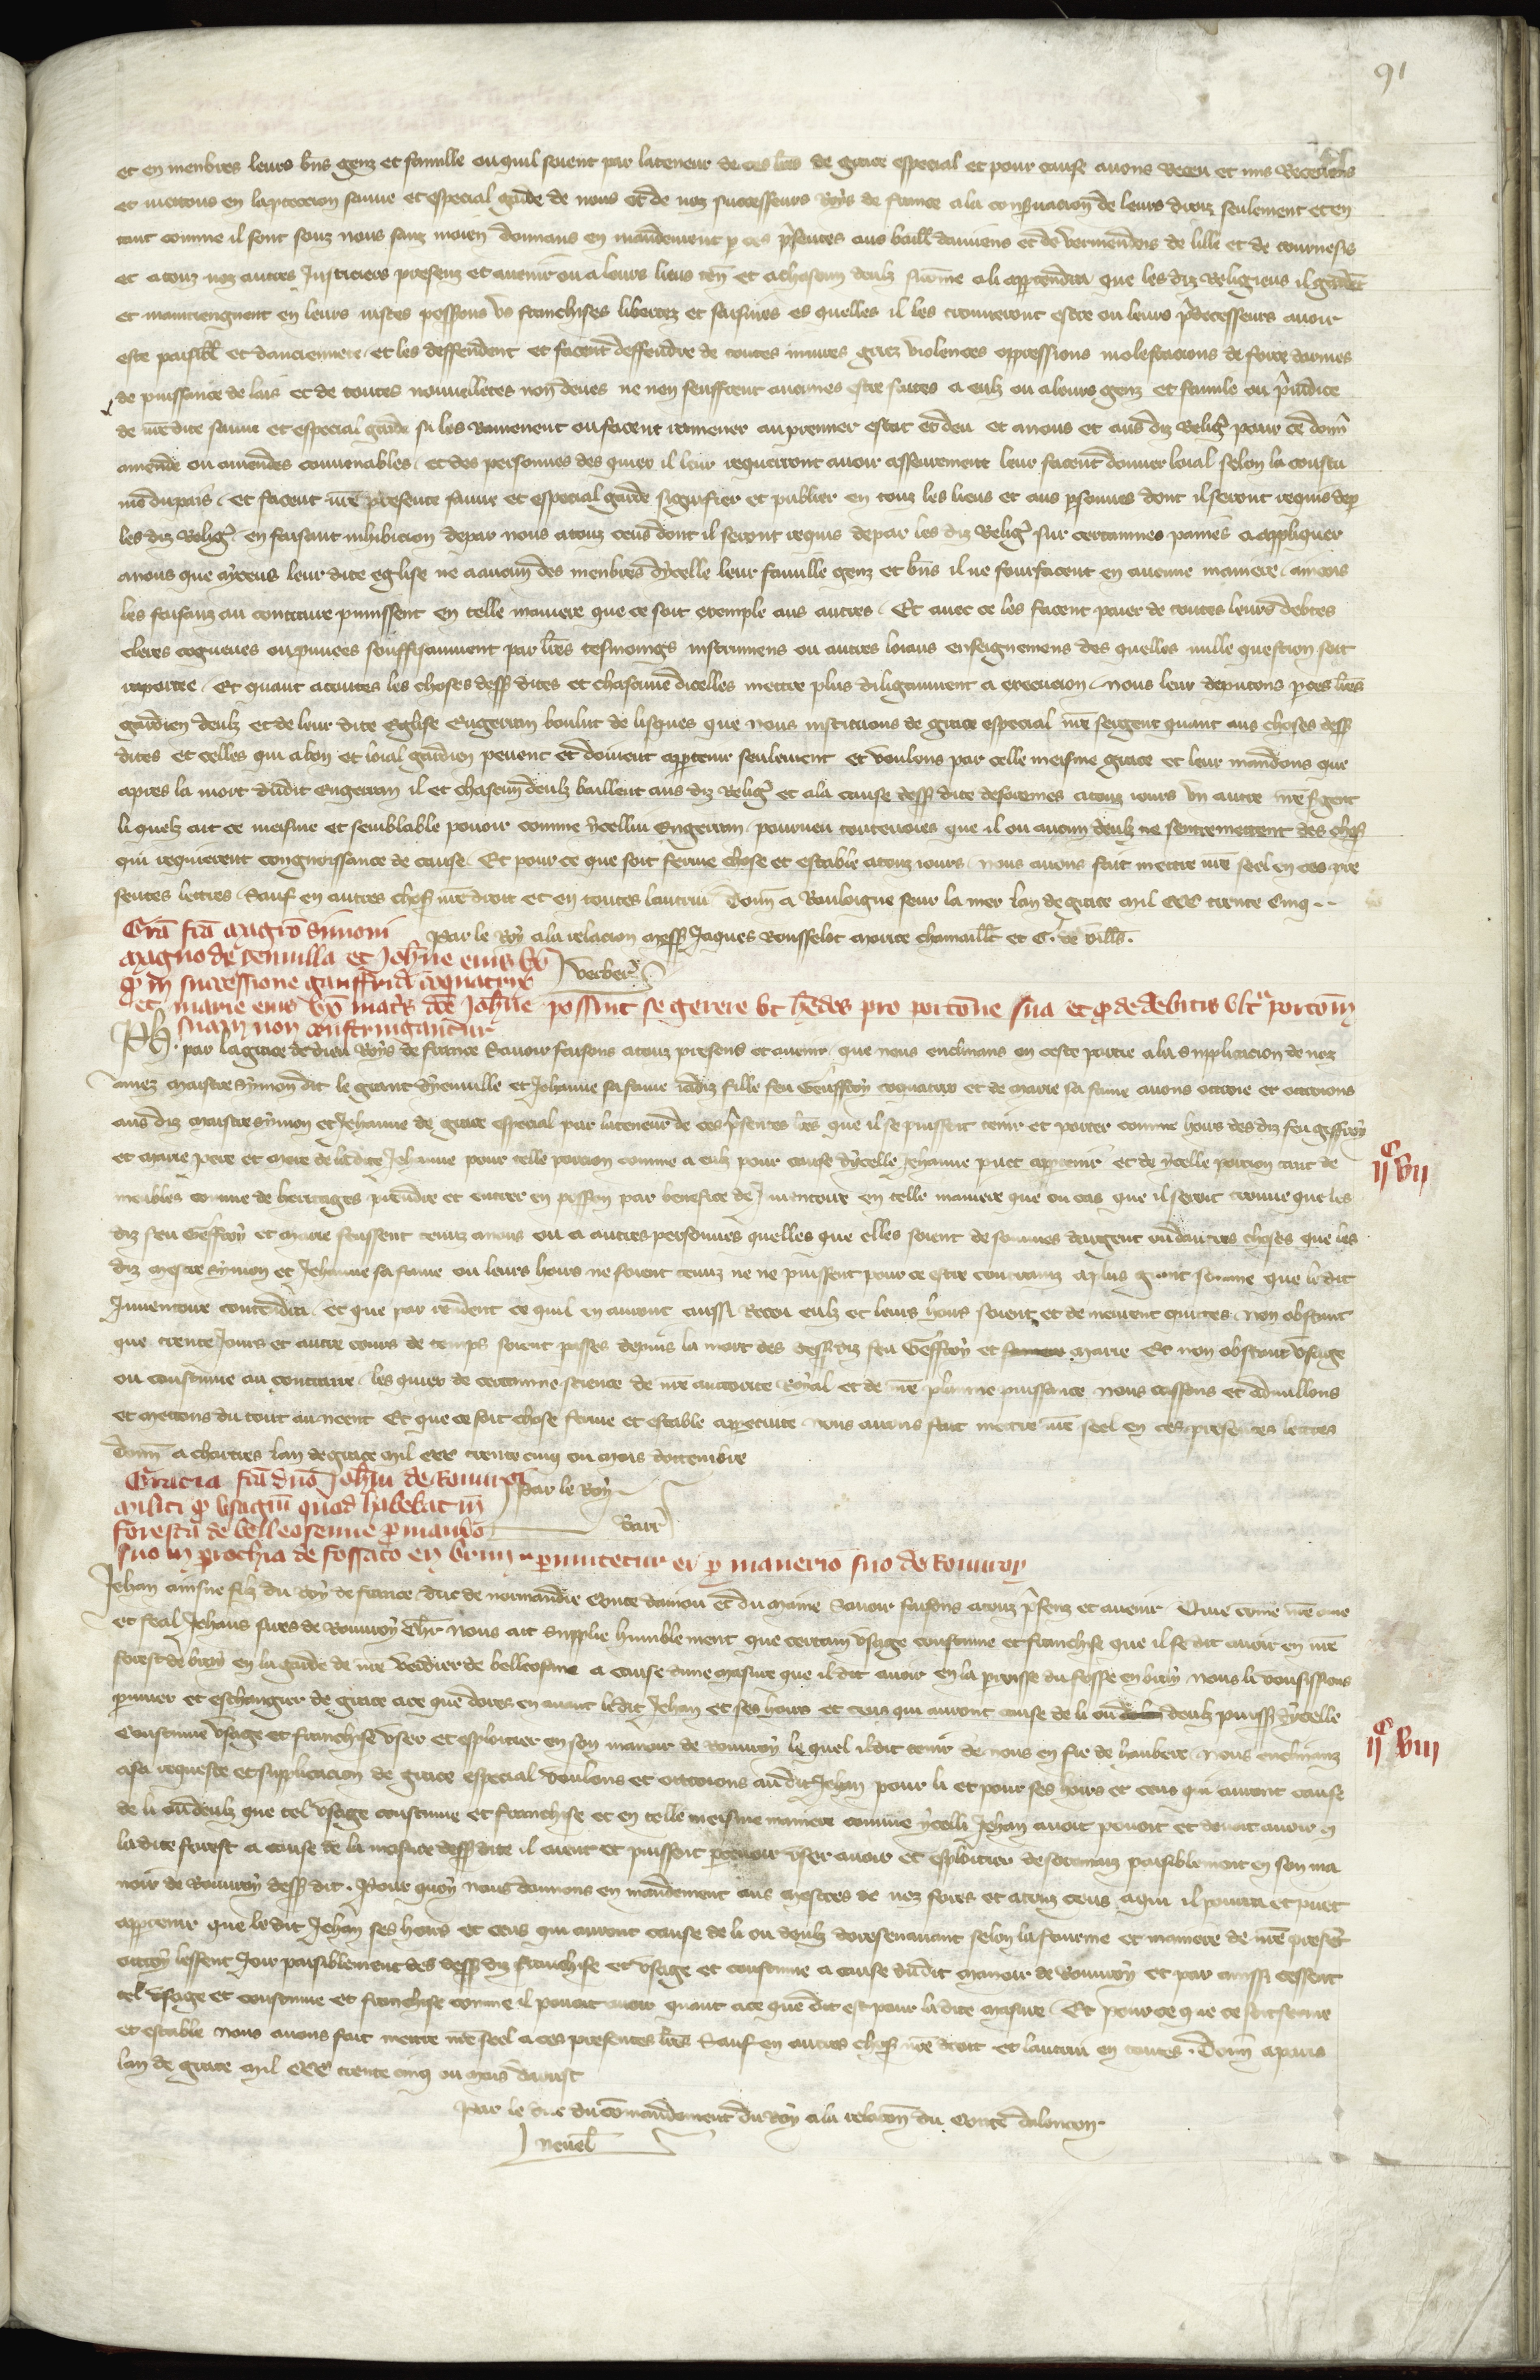 91
et en menbres leurs bñs genz et famille ou quil soient par la teneur de ces lr̃es de grace especial et pour cause avons receu et nus recevons
et metons en la proteccion sauve et especial garde de nous et de noz successeurs Roys de france a la conservacion de leurs droiz seulement et en
tant comme il sont souz nous sanz moien donnans en mandement p ces p̃sentes aus baill damiens et de vermendois de lille et de tournesis
et a touz noz autres Justiciers presenz et avenir ou a leurs lieus teñ et a chascun deulz si cõme a li appartendra que les diz Religieus il gardent
et maintiengnent en leurs iustes possessions vs franchises libertez et saisines es quelles il les trouveront estre ou leurs p̃decesseurs avoir
este paisibl et danciennete et les deffendent et facent deffendre de toutes iniures griez violences oppressions molestacions de force darmes
de puissance de lais et de toutes nouvelletes non deues ne nen seuffrent aucunes estre faites a eulz ou a leurs genz et famile ou preiudice
de nr̃e dite sauve et especial garde si les ramenent ou facent ramener au premier estat et deu et a nous et aus diz Relig̃ pour ce donñ
amende ou amendes convenables et des personnes des quiex il leur requerront avoir asseurement leur facent donner loial selon la coustu
me du pais et facent nr̃e presente sauve et especial garde signifier et publier en touz les lieus et aus p̃sonnes dont il seront requis dep
les diz Relig̃ en faisant inhibicion depar nous a touz ceus dont il seront requis depar les diz Relig̃ sur certainnes painnes a appliquer
a nous que a yceus leur dite eglise ne a aucun des menbres dycelle leur famille genz et bñs il ne fourfacent en aucune maniere aincois
les faisanz au contraire punissent en telle maniere que ce soit exemple aus autres Et avec ce les facent paier de toutes leurs debtes
cleres cogneues ou prouvees souffisamment par lr̃es tesmoings instrumens ou autres loiaus enseignemens des quelles nulle question soit
raportee Et quant a toutes les choses dess dites et chascune dicelles mettre plus diligamment a execucion nous leur deputons p ces lr̃es
gardien deulz et de leur dite Eglise Engerran boulut de lisques que nous instituons de grace especial nr̃e sergent quant aus choses dess
dites et celles qui a bon et loial gardien pevent et doivent appartenir seulement et voulons par celle meisme grace et leur mandons que
apres la mort dudit Engerran il et chascun deulz baillent aus diz Relig̃ et a la cause dess dite desoremes a touz iours un autre nr̃e s̃gent
li quelz ait ce meisme et semblable povoir comme ycelluy Engerran pourveu toutevoies que il ou aucun deulz ne sentremettent des chos
qui requierent congnoissance de cause Et pour ce que soit ferme chose et estable a touz iours nous avons fait mettre nr̃e seel en ces pre
sentes lettres Sauf en autres chos nr̃e droit et en toutes lautrui Donñ a Bouloigne seur la mer lan de grace mil ccc trente Cinq
Par le Roy a la relacion mess Jaques Rousselot maitre chamaill et G. de vill.
Verber
Grã fcã magrõ Simoni
magno de yenvilla et Joh̃ne eius ux
q̃ in successione gauffridi coquatrix
et marie eius ux̃ matr̃s dc̃e Joh̃ne possint se gerere ut h̃edes pro portõne sua et q̃ de debitis ult̃ portom̃
suam non constringantur
Ph par la grace de dieu Roys de france Savoir faisons a touz presens et avenir que nous enclinans en ceste partie a la supplicacion de noz
amez maistre Symon dit le grant dyenville et Jehanne sa fame iadiz fille feu Geuffroy coquatrix et de marie sa fame avons ottroie et ottroions
aus diz maistre Symon et Jehanne de grace especial par la teneur de ces p̃sentes lr̃es que il se puissent tenir et porter comme hoirs des diz feu geffroy
et marie pere et mere de la dite Jehanne pour telle porcion comme a eulz pour cause dycelle Jehanne puet appartenir et de ycelle porcion tant de
meubles comme de heritages prendre et entrer en possession par benefice de Inventoire en telle maniere que ou cas que il seroit trouve que les
diz feu Geffroy et marie feussent tenuz a nous ou a autres personnes quelles que elles soient de sommes dargent ou dautres choses que les
diz mestre Symon et Jehanne sa fame ou leurs hoirs ne soient tenuz ne ne puissent pour ce estre contrainz a plus grant somme que le dit
Inventoire contendra et que par rendent ce quil en auront aussi receu eulz et leurs hoirs soient et demeurent quittes non obstant
que trente Jours et autre cours de temps soient passes depuis la mort des dess diz feu Geffroy et marie Et non obstant usage
ou coustume au contraire les quiex de certainne science de nr̃e auctorite Royal et de nr̃e plainne puissance nous cassons et adnullons
et mettons du tout au neent Et que ce soit chose ferme et estable a perpetuite nous avons fait mettre nr̃e seel en ces presentes lettres
Donñ a chartres lan de grace mil ccc trente cinq ou mois dottembre
Par le Roy
Barr
Gracia fcã dno Joh̃i de Rouvroy
militi q̃ usagiũ quod habebat in
foresta de belleosenne p̃ maso
suo in p̃rochia de fossato en bray p̃mutetur ei p̃ manerio suo de Rouvroy
Jehan ainsne filz du Roy de france duc de normandie Conte danjou et du maine Savoir faisons a touz p̃senz et avenir Que come nr̃e ame
et feal Jehans sires de Rouvroy chl̃r nous ait supplie humblement que certain usage coustume et franchise que il se dit avoir en nr̃e
forest de bray en la garde de nr̃e verdier de belleosenne a cause dune masure que il dit avoir en la paroisse du fosse en bray nous li vousissions
p̃muer et eschangier de grace a ce que dores en avant le dit Jehan et ses hoirs et ceus qui auront cause de li ou deulz puiss dycelle
coustume usage et franchise user et esploitier en son manoir de Rouvroy le quel il dit tenir de nous en fie de haubere nous enclinanz
a sa requeste et supplicacion de grace especial voulons et ottroions audit Jehan pour li et pour ses hoirs et ceus qui auront cause
de li ou deulz que tel usage coustume et franchise et en telle meisme maniere comme ycelli Jehan avoit povoit et devoit avoir
la dite forest a cause de la masure dess dite il aient et puissent p̃cevoir user avoir et esploitier desoremaiz paisiblement en son ma
noir de Rouvroy dess dit. Pour quoy nous donnons en mandement aus mestres de noz fores et a touz ceus a qui il pourra et puet
appartenir que le dit Jehan ses hoirs et ceus qui auront cause de li ou deulz doresenavant selon la fourme et maniere de nr̃e present
ottroy lessent Joir paisiblement des dess diz franchise et usage et coustume a cause dudit manoir de Rouvroy et par ainssi cessent
tel usage et coustume et franchise comme il povoit avoir quant a ce que dit est pour la dite masure Et pour ce que ce soit ferme
et estable nous avons fait mettre nr̃e seel a ces presentes lr̃es Sauf en autres chos nr̃e droit et lautrui en toutes. Donñ a paris
lan de grace mil ccc trente cinq ou mois daoust
Par le duc du cõmandement du Roy a la relacion du Conte dalencon
neuel
ijc vii
ijc viii